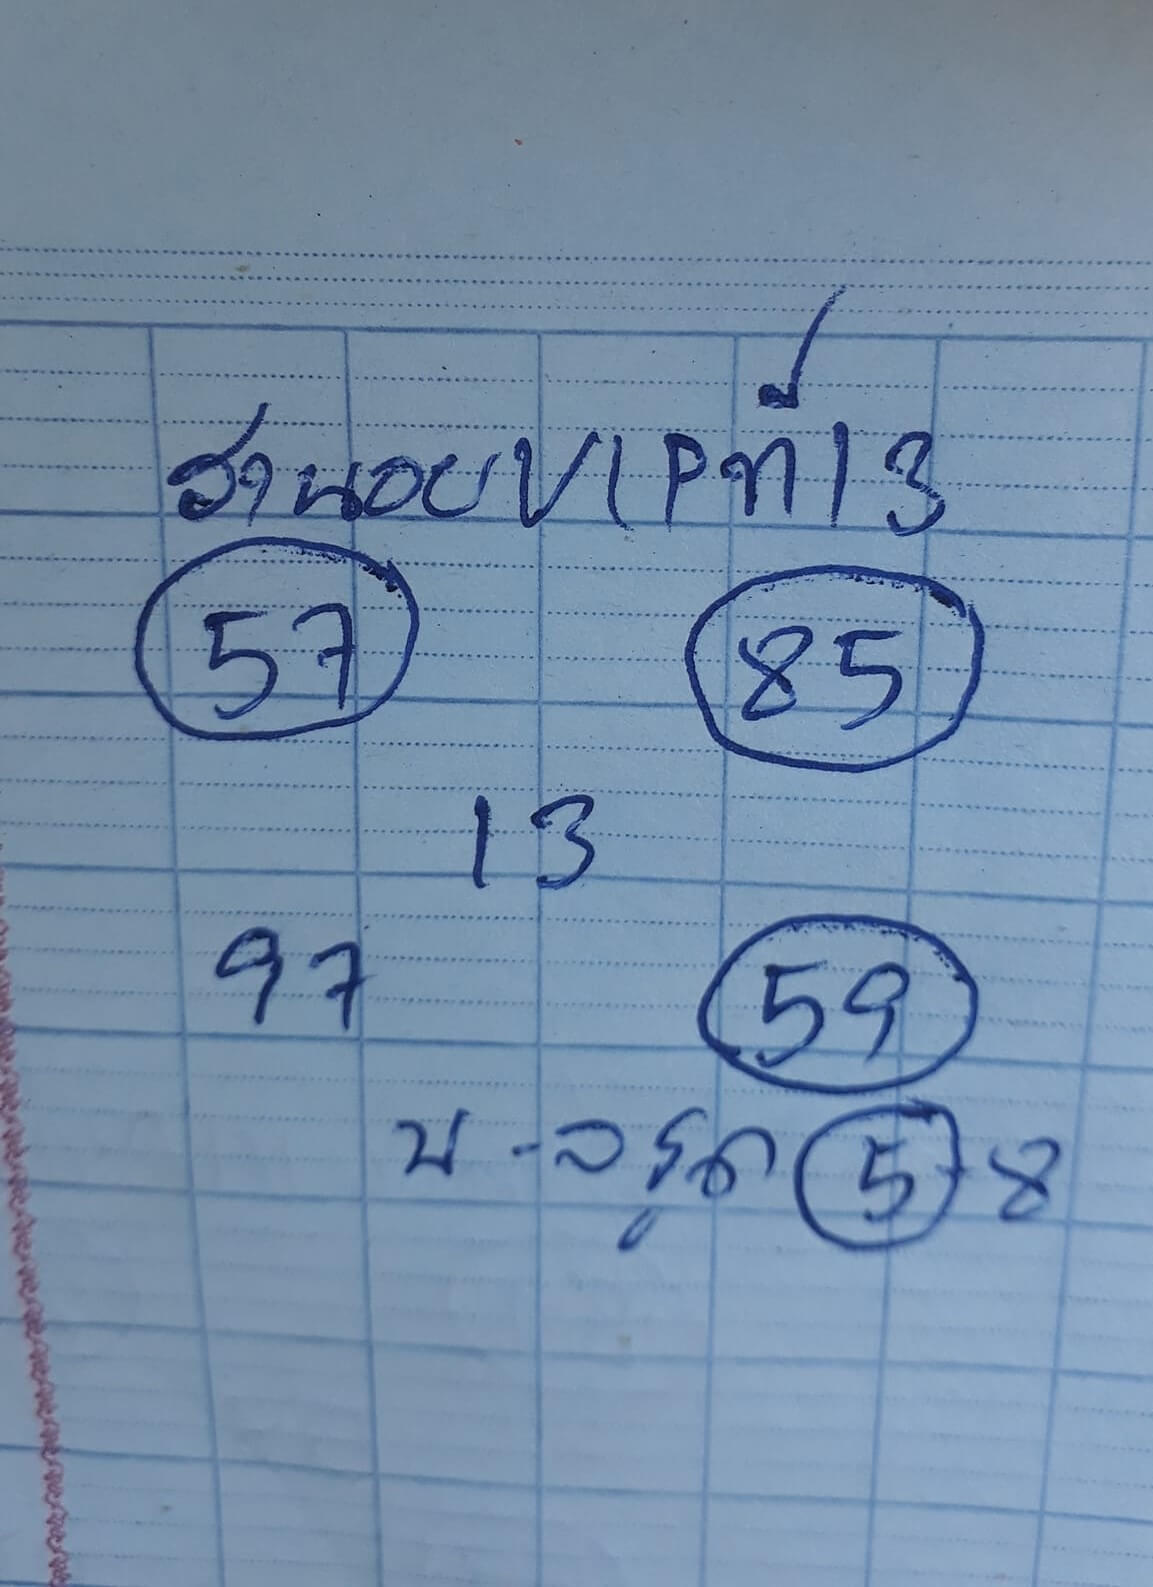 ฮานอยVIPที่13
57 85
13
97 59
บ-ลรูด 5-8